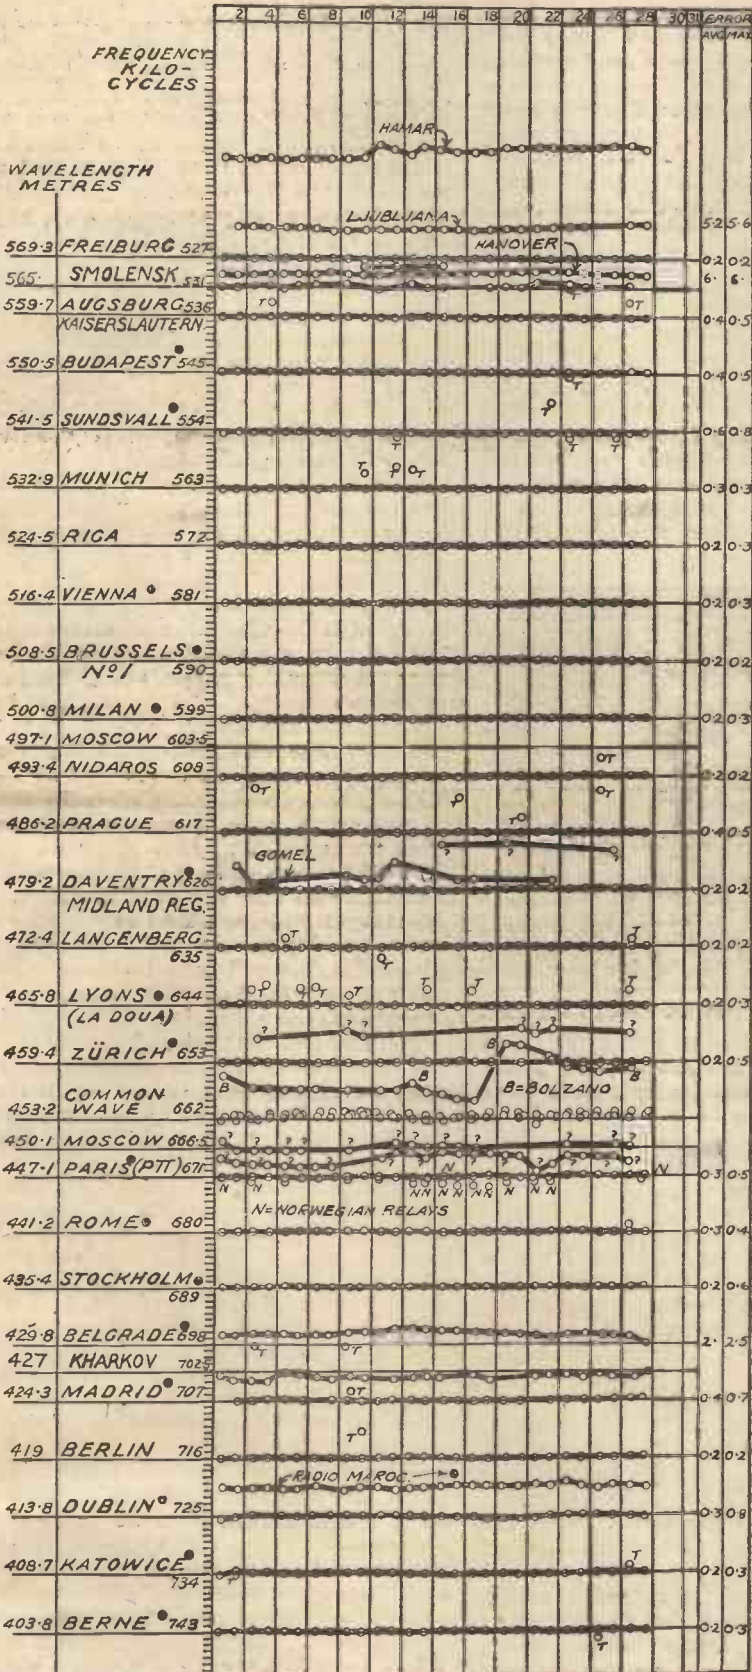 2 4 6 8 10 12 14 16 18 20 22 24 26 28 30 31 ERROR
AVG MAX
FREQUENCY
KILO-
CYCLES
HAMAR
WAVELENGTH
METRES
LJUBLJANA 5·2 5·6
569·3 FREIBURG 527 HANOVER 0·2 0·2
565· SMOLENSK 531 6· 6·
559·7 AUGSBURG 536 T T T
KAISERSLAUTERN 0·4 0·5
550·5 BUDAPEST 545 T 0·4 0·5
541·5 SUNDSVALL 554 T T T T 0·6 0·8
532·9 MUNICH 563 T T T 0·3 0·3
524·5 RIGA 572 0·2 0·3
516·4 VIENNA 581 0·2 0·3
508·5 BRUSSELS 0·2 0·2
Nº 1 590
500·8 MILAN 599 0·2 0·3
497·1 MOSCOW 603·5
493·4 NIDAROS 608 T 0·2 0·2
T T T T
486·2 PRAGUE 617 0·4 0·5
? ? ?
GOMEL
479·2 DAVENTRY 626 0·2 0·2
MIDLAND REG.
472·4 LANGENBERG T T 0·2 0·2
635 T
465·8 LYONS 644 T T T T T T T T 0·2 0·3
(LA DOUA)
? ? ? ? ? ? ?
459·4 ZÜRICH 653 B 0·2 0·5
B B B=BOLZANO B
COMMON
453·2 WAVE 662
450·1 MOSCOW 666·5 ? ? ? ? ? ? ? ? ? ?
447·1 PARIS (PTT) 671 N N 0·3 0·5
N N N N N N N N N N N
N=NORWEGIAN RELAYS
441·2 ROME 680 0·3 0·4
435·4 STOCKHOLM 0·2 0·6
689
429·8 BELGRADE 698 T T 2· 2·5
427 KHARKOV 702·5
424·3 MADRID 707 T 0·4 0·7
419 BERLIN 716 T 0·2 0·2
RADIO MAROC.
413·8 DUBLIN 725 0·3 0·8
408·7 KATOWICE T T 0·2 0·3
734
403·8 BERNE 743 T 0·2 0·3